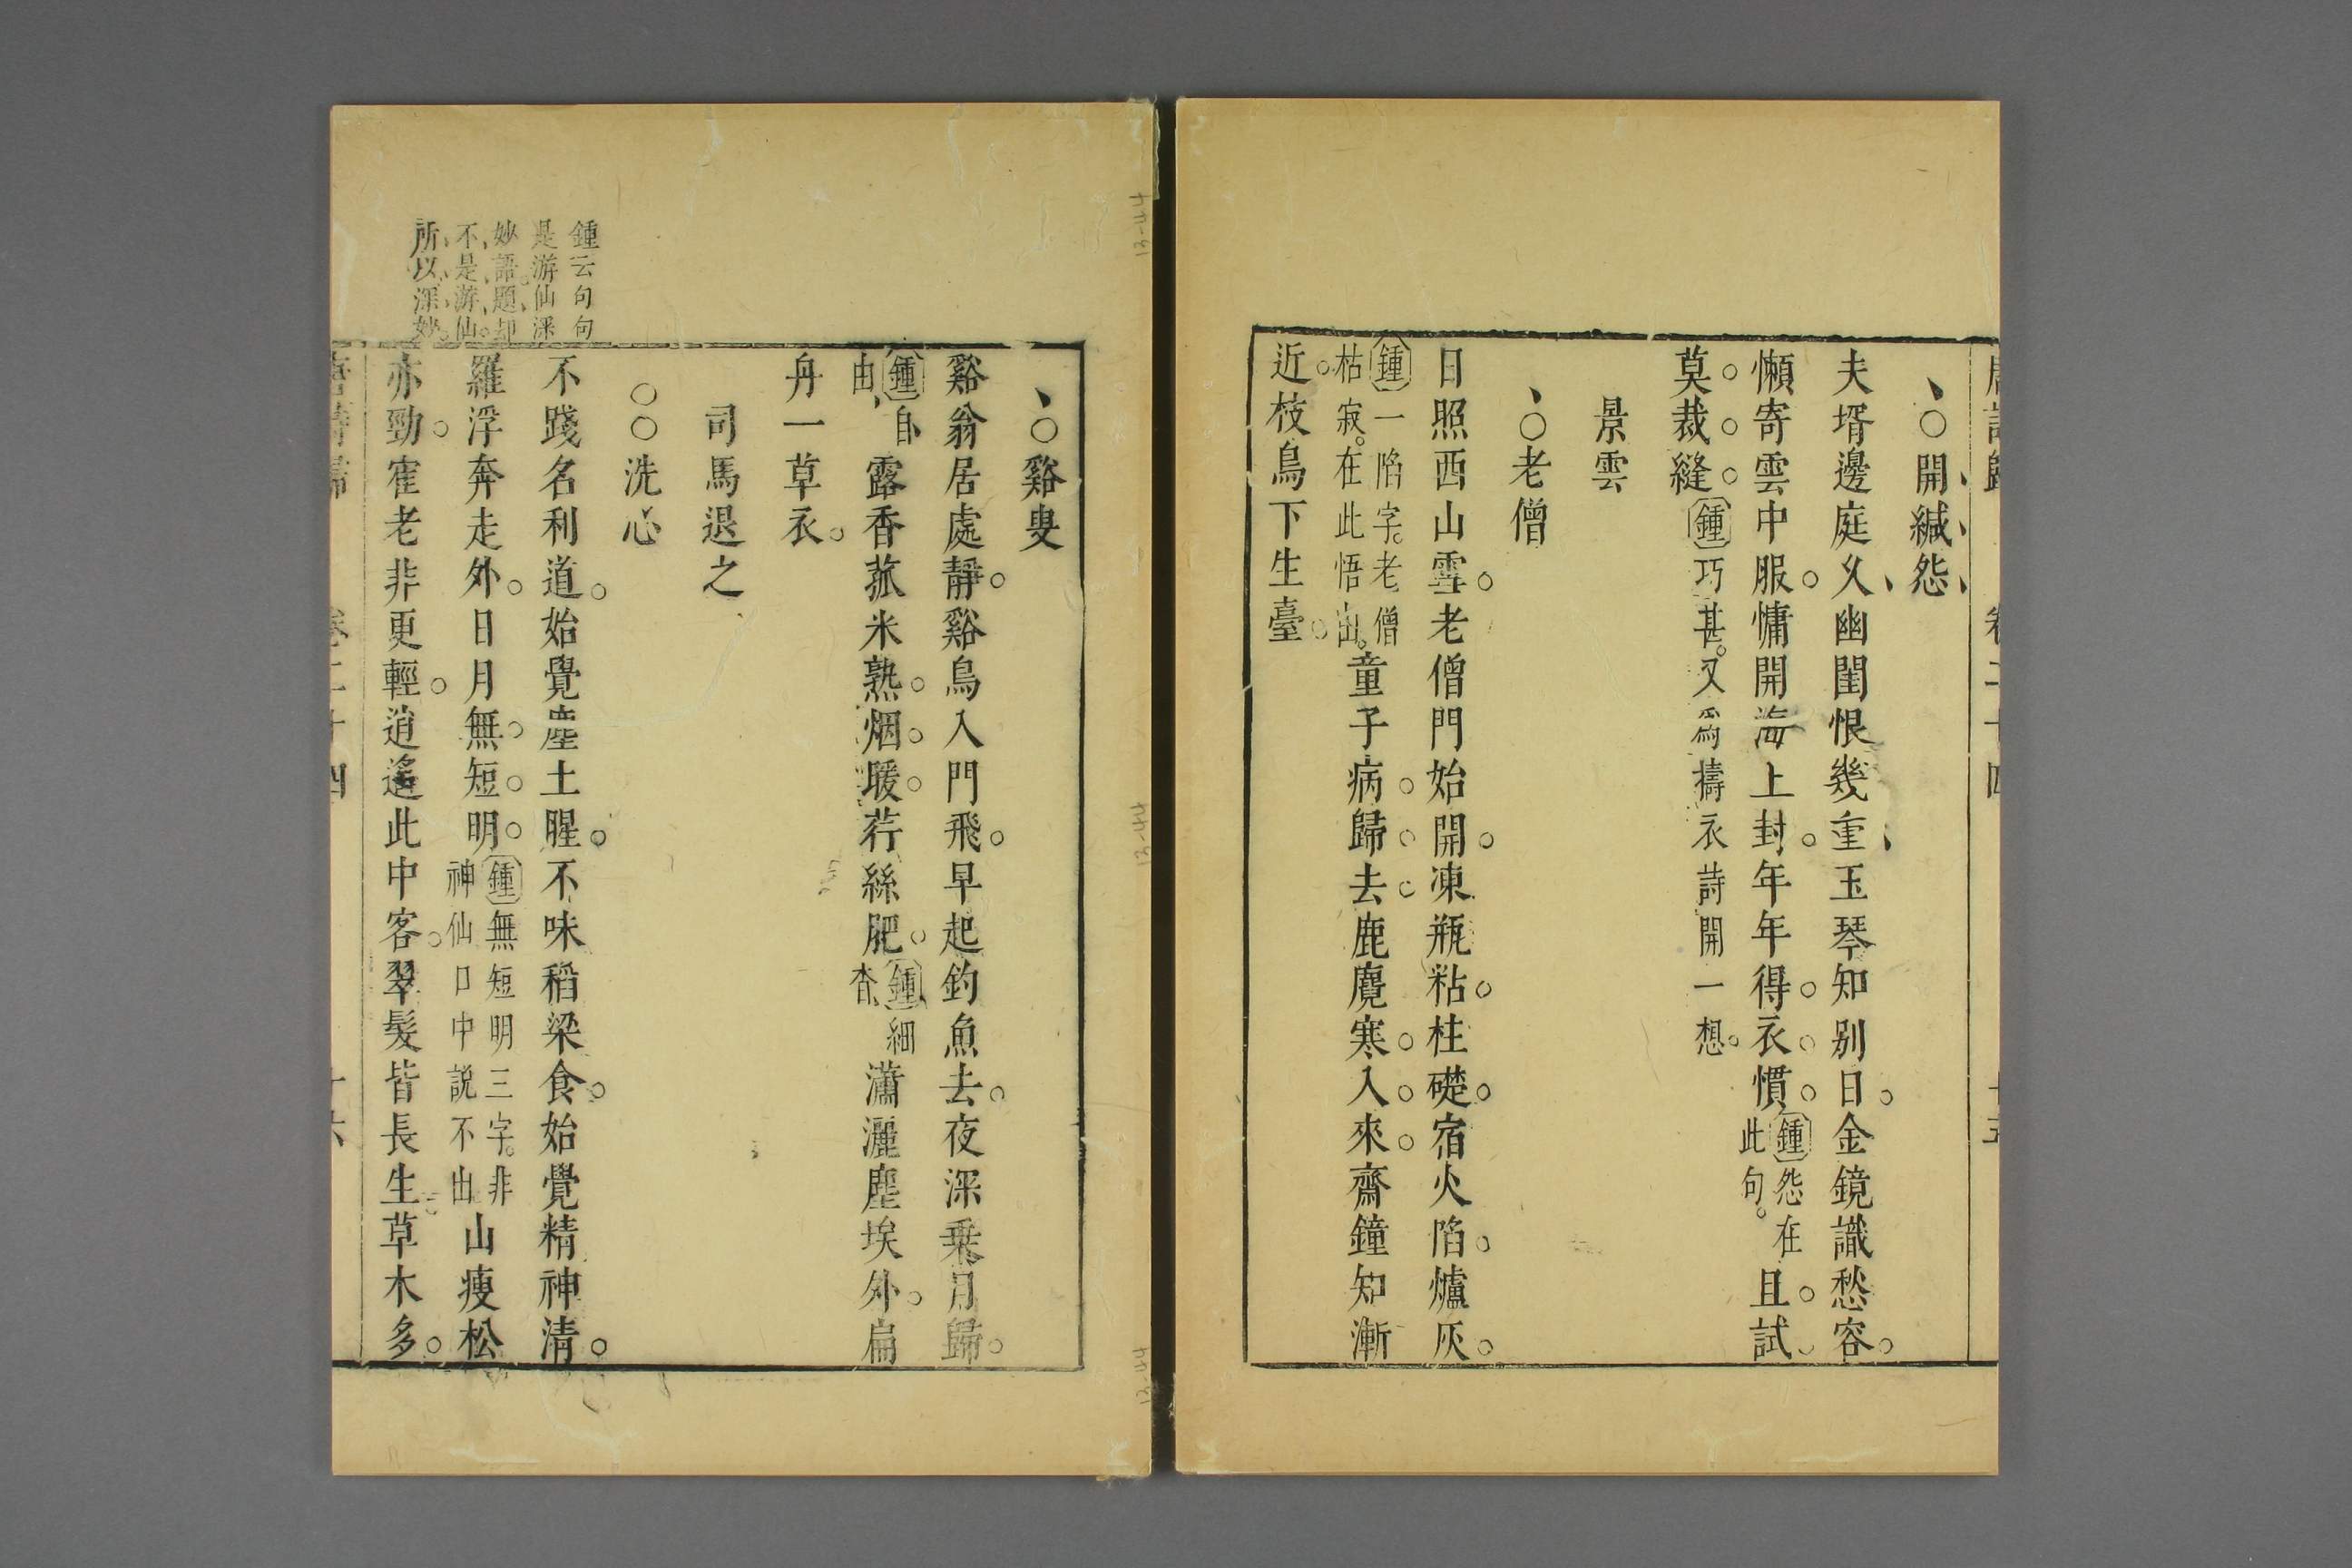 開緘怨
夫壻邊庭久幽閨恨幾重玉琴知别日金鏡識愁容
懶寄雲中服慵開海上封年年得衣慣鍾怨在此句且試
莫裁縫鍾巧甚又爲擣衣詩開一想
景雲
老僧
日照西山雪老僧門始開凍瓶粘柱礎宿火陷爐灰
鍾一陷字老僧枯寂在此悟出童子病歸去鹿麑寒入來齋鐘知漸
近枝鳥下生臺
谿叟
谿翁居處靜谿鳥入門飛早起釣魚去夜深乗月歸
鍾自由露香菰米熟烟暖荇絲肥鍾細杳瀟灑塵埃外扁
舟一草衣
司馬退之
洗心
不踐名利道始覺塵土腥不味稻梁食始覺精神清
羅浮奔走外日月無短明鍾無短明三字非神仙口中説不出山瘦松
亦勁寉老非更輕逍遙此中客翠髮皆長生草木多
鍾云句句
是游仙深
妙語題却
不是游仙
所以深妙
卷二十四